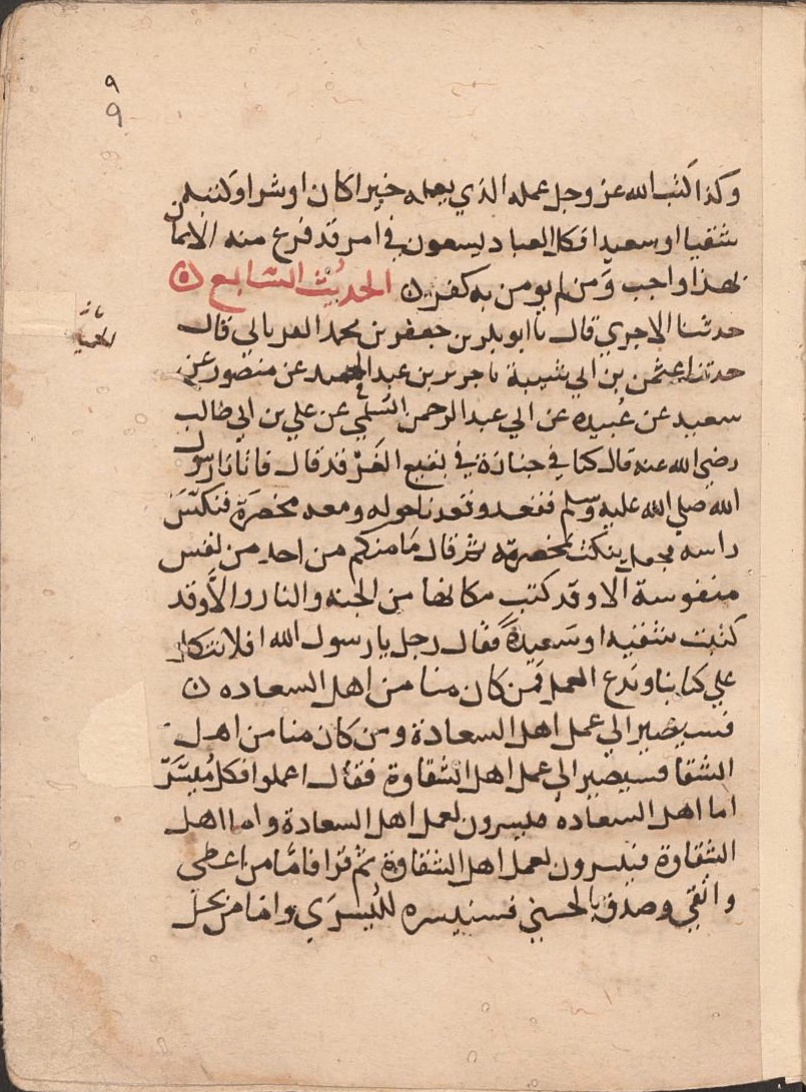 ٩
9
وكذا كتب الله عز وجل عمله الذي يعمله خيرا كان او شرا وكتبه
شقيا او سعيدا فكل العباد يسعون في امر قد فرغ منه الايما
بهذا واجب ومن لم يومن به كفر ن الحديث السابع ن
حدثنا الاجري قال نا ابو بكر بن جعفر بن محمد الفريابي قال
حدثنا عثمن بن ابي شيبة نا جرير بن عبد الحميد عن منصور عن
سعيد عن عبيده عن ابي عبد الرحمن السلمي عن علي بن ابي طالب
رضي الله عنه قال كنا في جنازة في بقيع الغرقد قال فاتانا رسول
الله صلي الله عليه وسلم فقعد وقعدنا حوله ومعه مخصرة فنكس
راسه فجعل ينكت بمخصرته ثم قال ما منكم من احد من نفس
منفوسة الا وقد كتب مكانها من الجنه والنار والا وقد
كتبت شقيه او سعيدة فقال رجل يا رسول الله افلا نتكل
علي كتابنا وندع العمل فمن كان منا من اهل السعاده ن
فسيصير الي عمل اهل السعادة ومن كان منا من اهل
الشقا فسيصير الي عمل اهل الشقاوة فقال اعملوا فكل ميسر
اما اهل السعاده ميسرون لعمل اهل السعادة واما اهل
الشقاوة فييسرون لعمل اهل الشقاوة ثم قرا فاما من اعطي
واتقي وصدق بالحسني فسنيسره لليسري واما من بخل